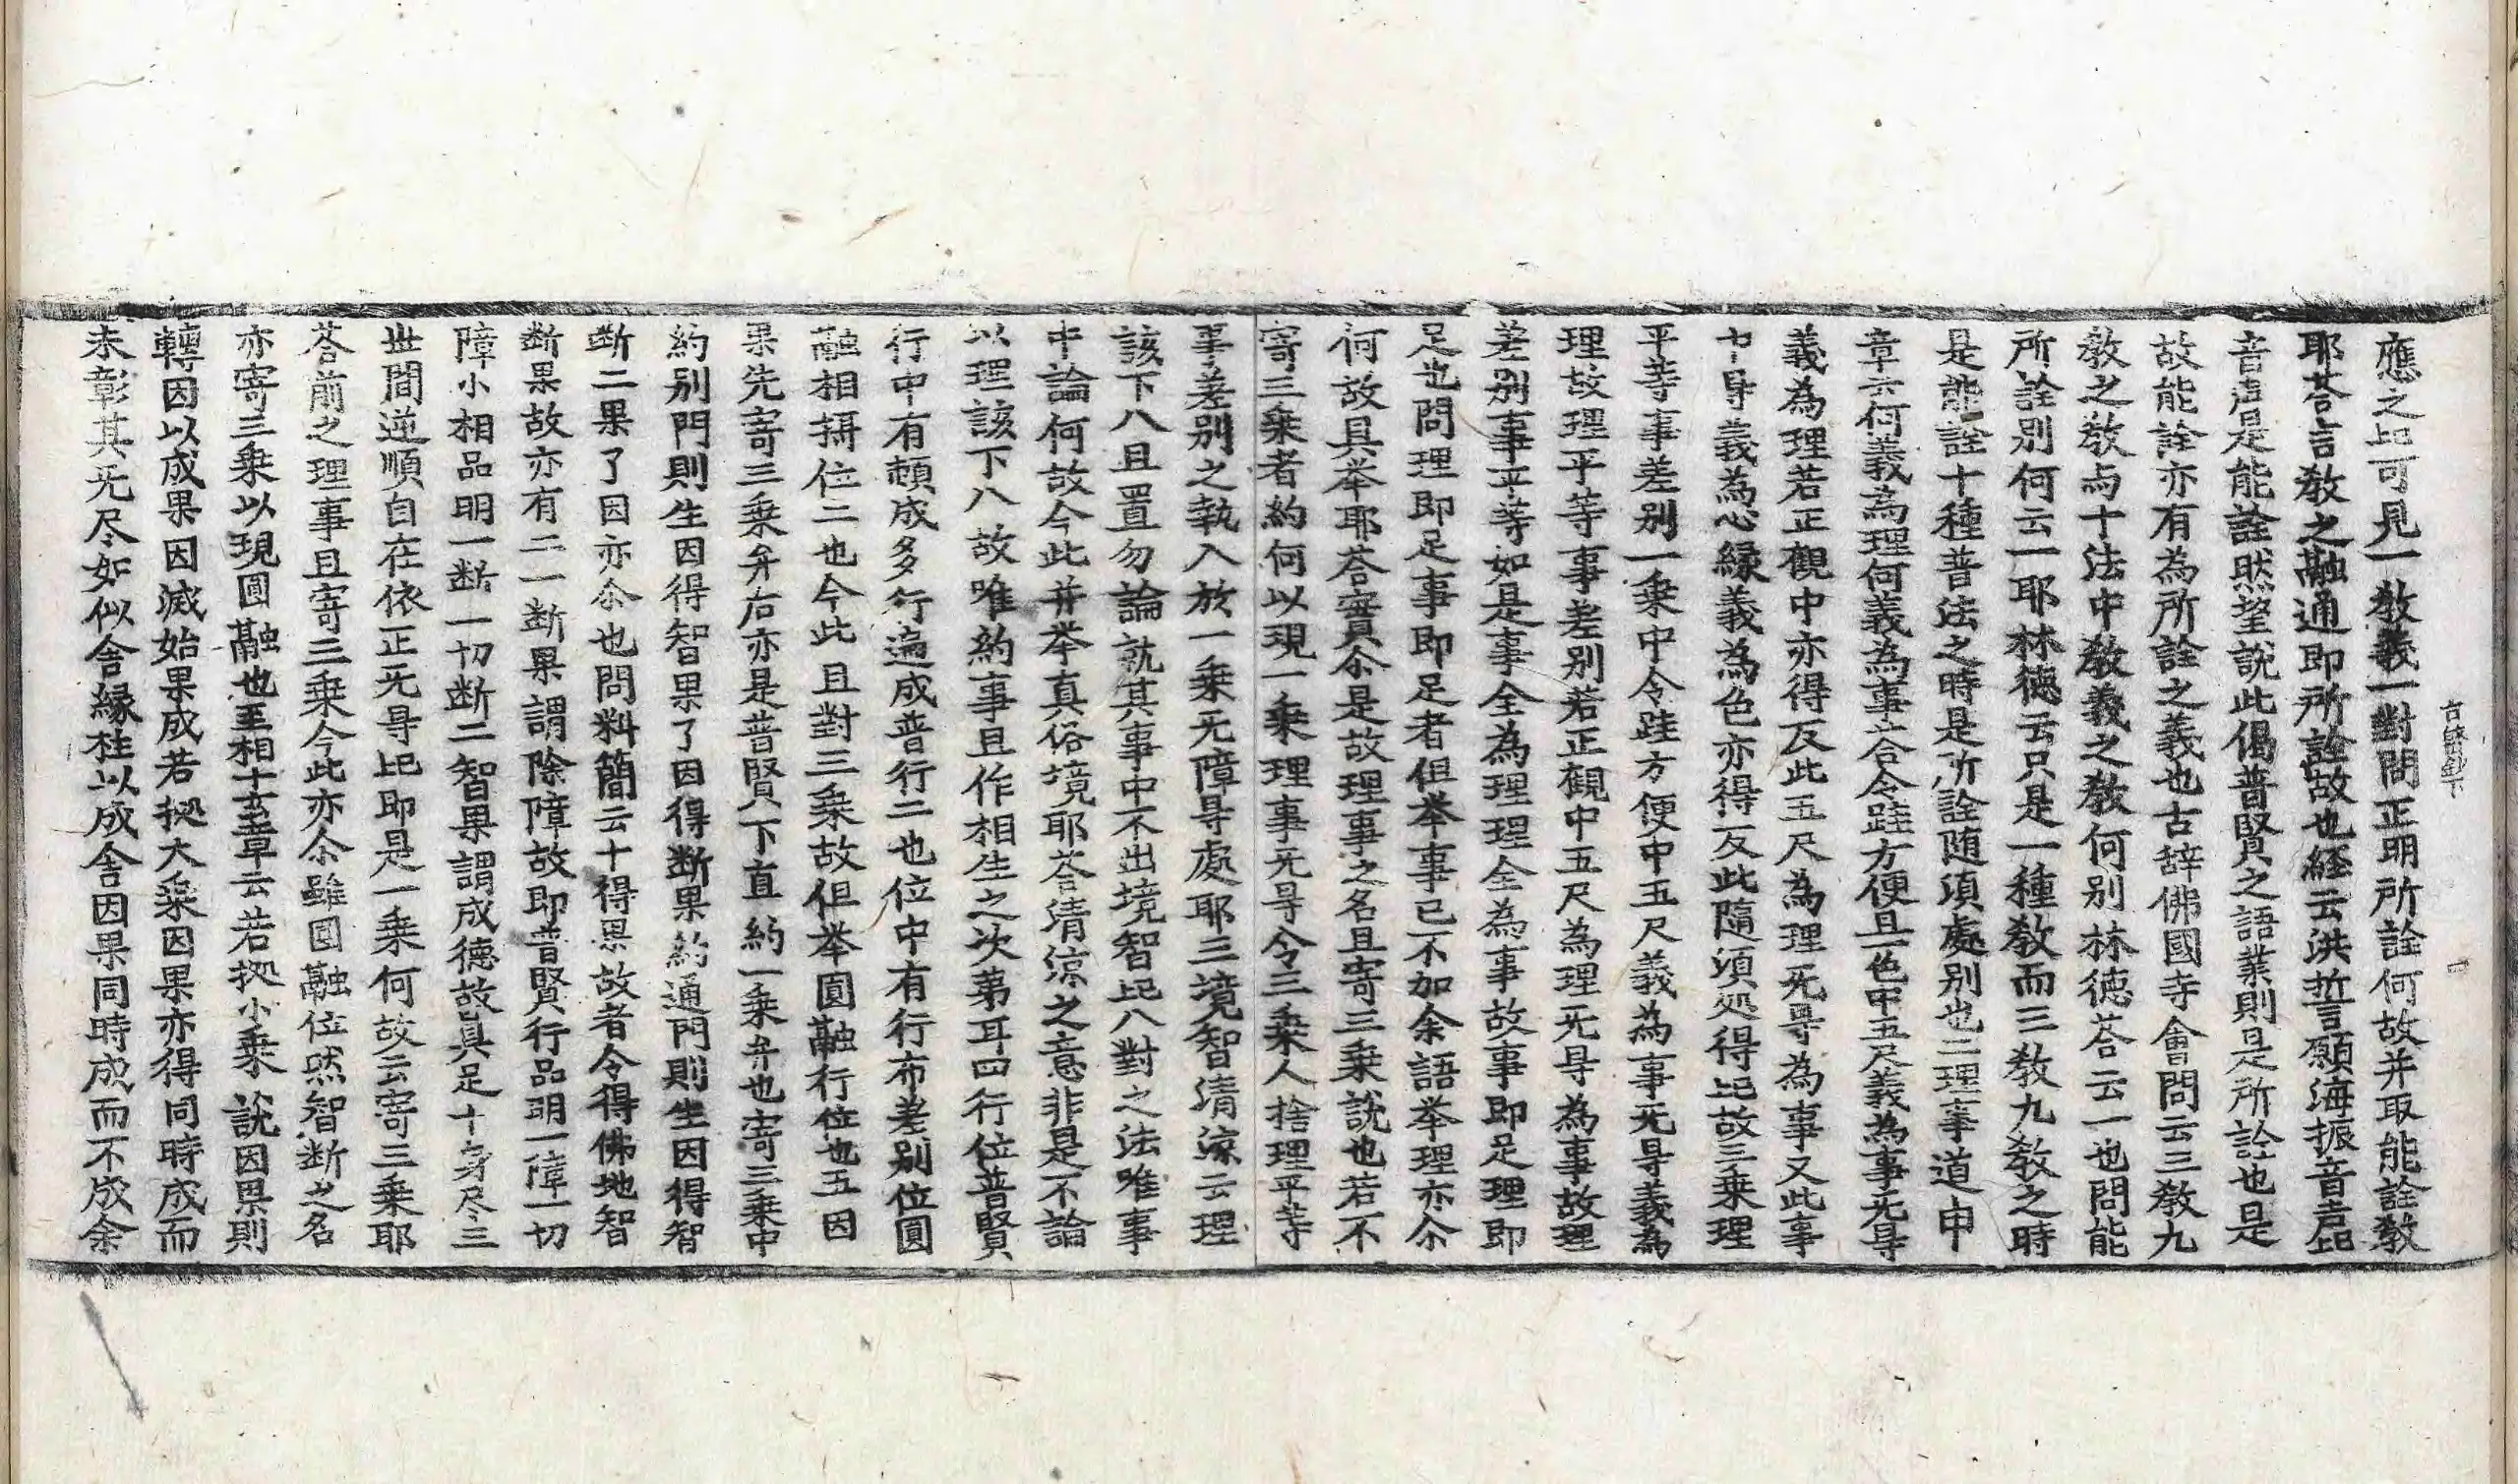 應之比可見一教義一對問正明所詮何故并取能詮教
耶荅言教之融通即所詮故也経云洪誓願海振音声比
音声是能詮然望説此偈普賢之語業則是所詮也是
故能詮亦有為所詮之義也古辞佛國寺會問云三教九
教之教与十法中教義之教何別林德荅云一也問能
所詮別何云一耶林德云只是一種教而三教九教之時
是能詮十種普法之時是所詮随須處別也二理事道申
章云何義為理何義為事荅令跬方便且一色中五尺義為事旡㝵
義為理若正觀中亦得反此五尺為理旡㝵為事又此事
中㝵義為心緣義為色亦得反此隨須処得比故三乗理
平等事差別一乗中令跬方便中五尺義為事旡㝵義為
理故理平等事差別若正觀中五尺為理旡㝵為事故理
差別事平等如是事全為理理全為事故事即足理即
足也問理即足事即足者但举事已不加余語举理亦尒
何故具举耶荅實尒是故理事之名且寄三乗說也若不
寄三乗者約何以現一乗理事旡㝵令三乗人捨理平等
事差別之執入於一乗旡障㝵處耶三境智清凉云理
該下八且置勿論就其事中不出境智比八對之法唯事
中論何故今此并举真俗境耶荅清凉之意非是不論
以理該下八故唯約事且作相生之次第耳四行位普賢
行中有頓成多行遍成普行二也位中有行布差別位圓
融相攝位二也今此且對三乗故但举圓融行位也五因
果先寄三乗弁右亦是普賢八下直約一乗弁也寄三乗中
約別門則生因得智果了因得断果約通門則生因得智
断二果了因亦尒也問料簡云十得果故者令得佛地智
断果故亦有二一断果謂除障故即普賢行品明一障一切
障小相品明一断一切断二智果謂成德故具足十身尽三
世間逆順自在依正旡㝵比即是一乗何故云寄三乗耶
荅前之理事且寄三乗今此亦尒雖圓融位然智断之名
亦寄三乗以現圓融也至相十玄章云若拠小乗說因果則
轉因以成果因滅始果成若拠大乗因果亦得同時成而
未彰其旡尽如似舍緣柱以成舍因果同時成而不成余